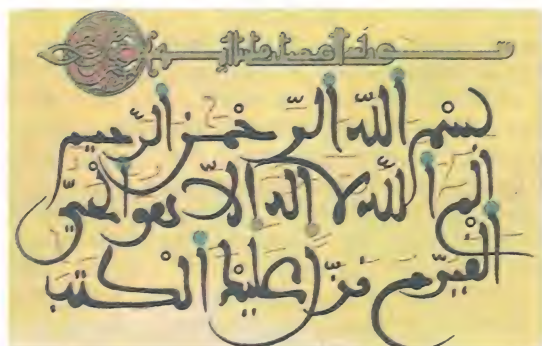 بِسْمِ اللَّهِ الرَّحْمَٰنِ الرَّحِيمِ
الٓمٓ اللَّهُ لَا إِلَٰهَ إِلَّا هُوَ الْحَيُّ
الْقَيُّومُ نَزَّلَ عَلَيْكَ الْكِتَٰبَ